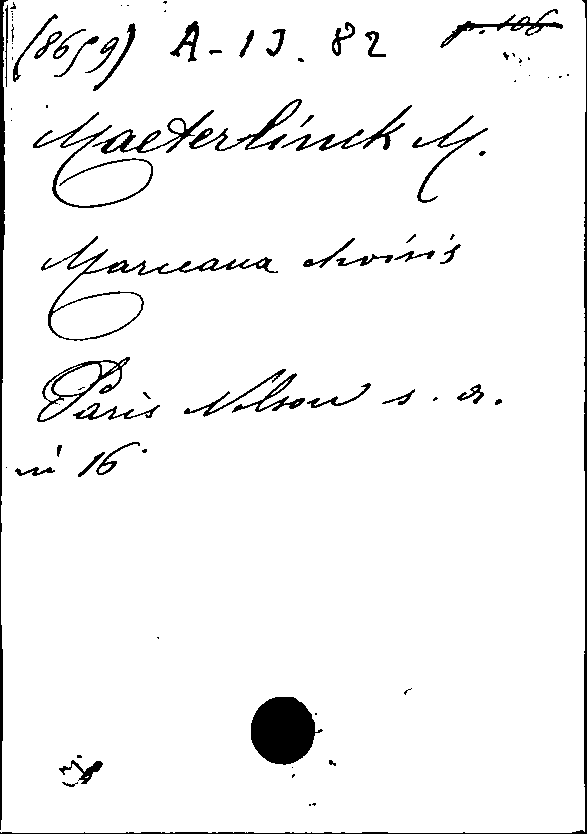 (8659) A-13.82 p. 106
Maeterlinck M.
Morceaux choisis
Paris Nelson s. a.
in 16°